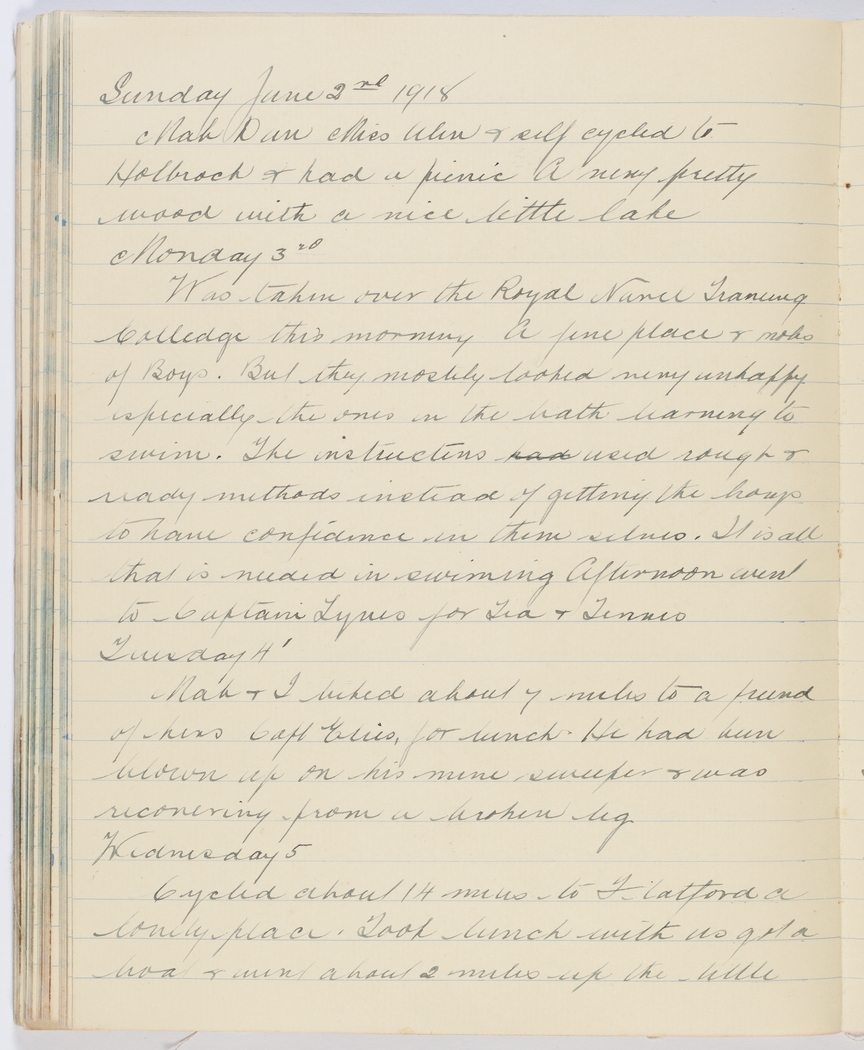 Sunday June 2nd 1918
Mab Dun Miss & self cycled to
Holbrock & had a picnic A very pretty
wood with a nice little lake
Monday 3rd
Was taken over the Royal Navel Traneing
Colledge this morning A fine place & mobs
of Boys. But they mostly looked very unhappy
especially the ones in the bath learning to
swim. The instructers had used rough &
ready methods instead of getting the boays
to have confidence in them selves. It is all
that is needed in swiming Afternoon went
to Captain Lynes for Tea & Tennis
Tuesday 4'
Mab & I biked about 7 miles to a friend
of hers Capt Elies, for lunch. He had been
blown up on his mine sweeper & was
recovering from a broken leg
Wednesday 5
Cycled about 14 miles to Flatford a
lovely place. Took lunch with us got a
boat & went about 2 miles up the little